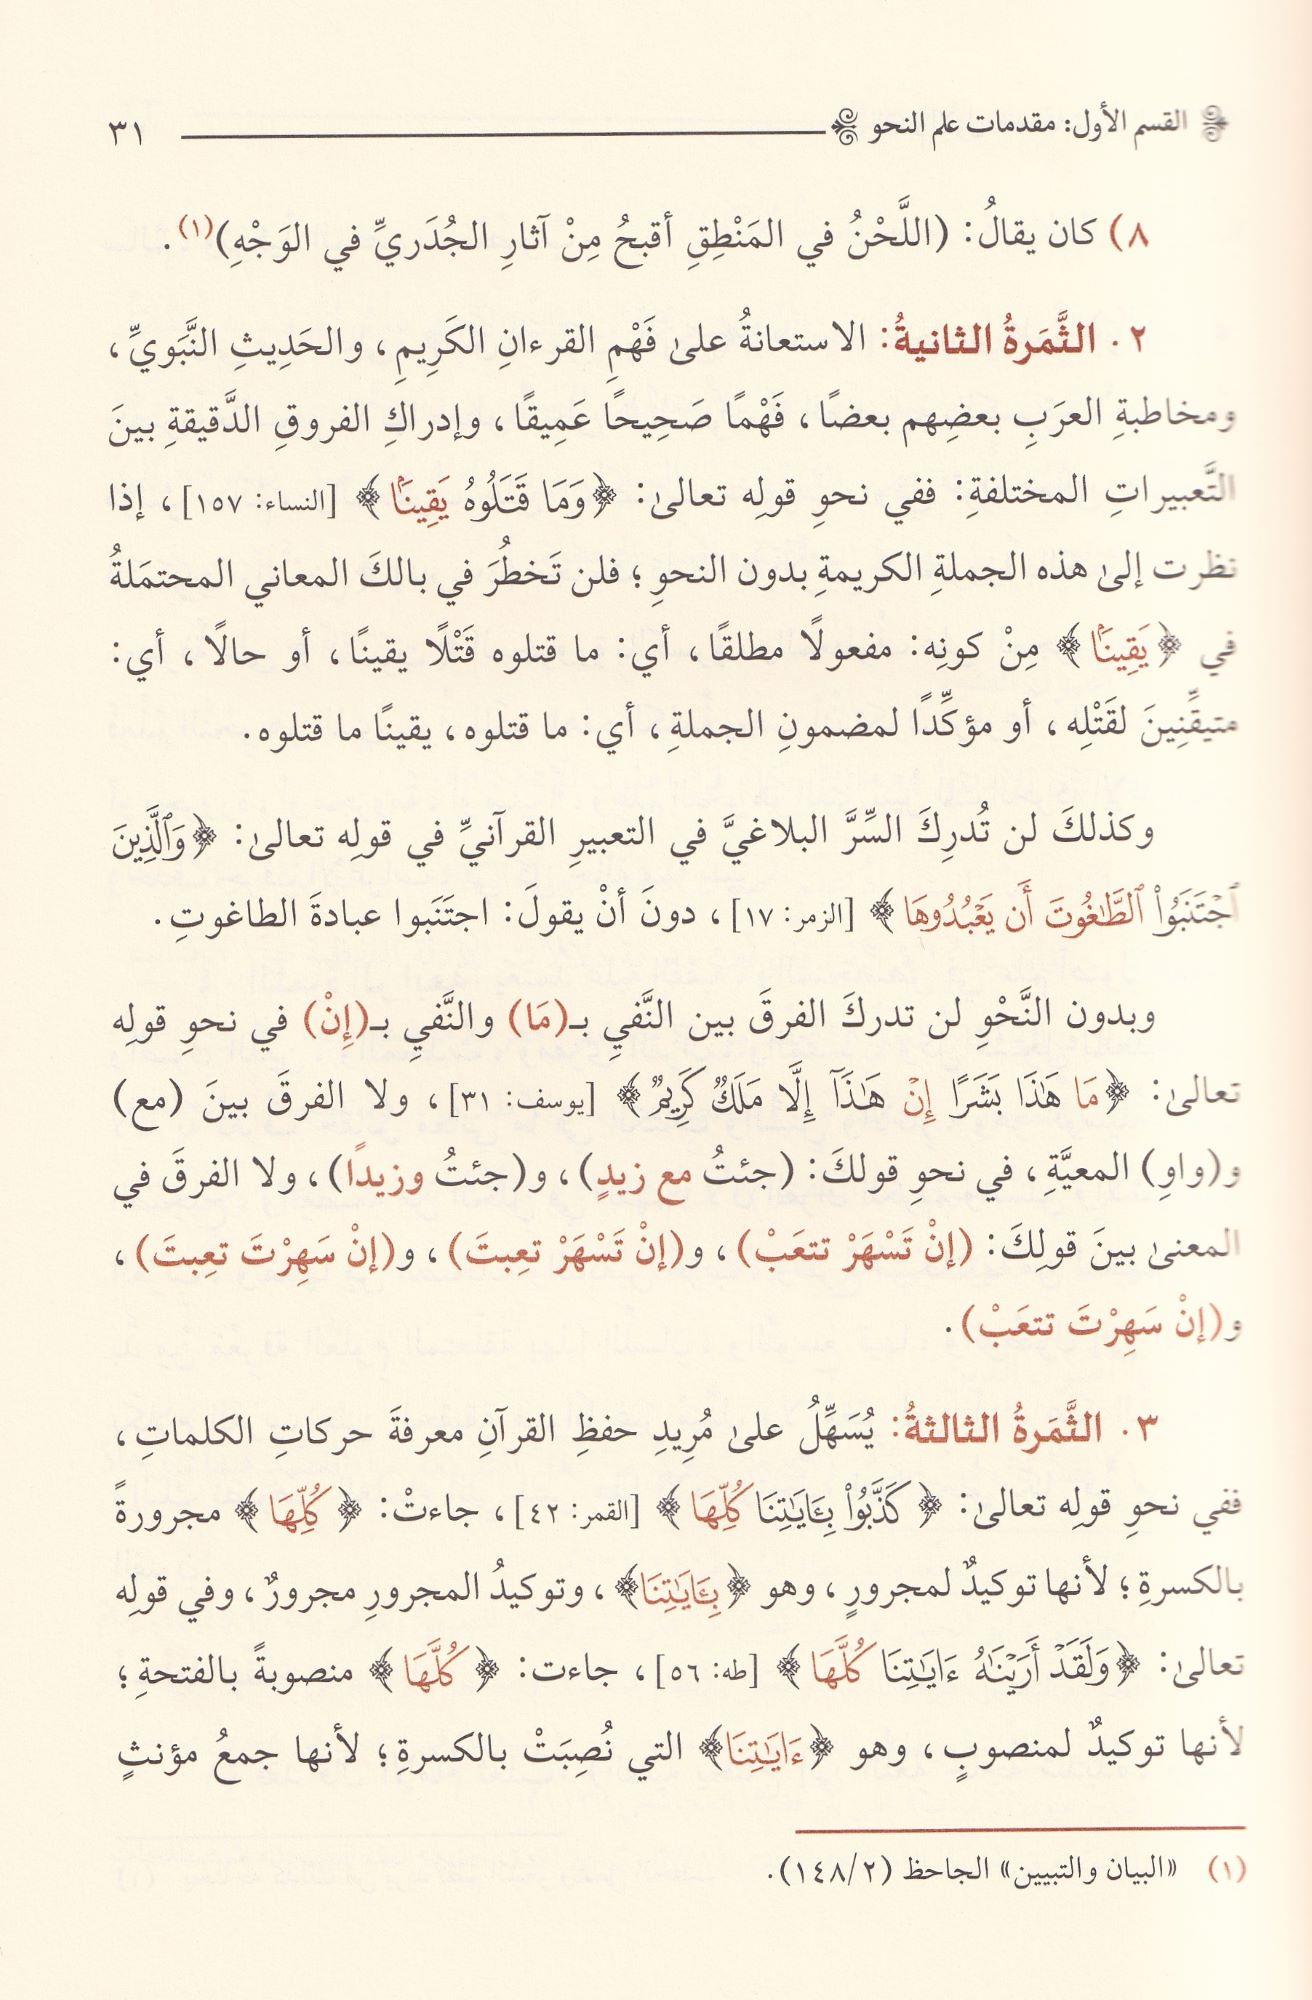 القسم الأول: مقدمات علم النحو ٣١
٨) كان يقالُ: (اللَّحْنُ في المَنْطِقِ أقبحُ مِنْ آثارِ الجُدَريِّ في الوَجْهِ)(١).
٢. الثَّمَرةُ الثانيةُ: الاستعانةُ علىٰ فَهْمِ القرءانِ الكَرِيمِ، والحَدِيثِ النَّبَويِّ،
ومخاطبةِ العرَبِ بعضِهم بعضًا، فَهْمًا صَحِيحًا عَمِيقًا، وإدراكِ الفروقِ الدَّقيقةِ بينَ
التَّعبيراتِ المختلفةِ: ففي نحوِ قولِه تعالىٰ: ﴿وَمَا قَتَلُوهُ يَقِينَۢا﴾ [النساء: ١٥٧]، إذا
نظرت إلىٰ هذه الجملةِ الكريمةِ بدون النحوِ؛ فلن تَخطُرَ في بالكَ المعاني المحتمَلةُ
في ﴿يَقِينَۢا﴾ مِنْ كونِه: مفعولًا مطلقًا، أي: ما قتلوه قَتْلًا يقينًا، أو حالًا، أي:
متيقِّنِينَ لقَتْلِه، أو مؤكِّدًا لمضمونِ الجملةِ، أي: ما قتلوه، يقينًا ما قتلوه.
وكذلكَ لن تُدرِكَ السِّرَّ البلاغيَّ في التعبيرِ القرآنيِّ في قولِه تعالىٰ: ﴿وَٱلَّذِينَ
ٱجۡتَنَبُواْ ٱلطَّٰغُوتَ أَن يَعۡبُدُوهَا﴾ [الزمر: ١٧]، دونَ أنْ يقولَ: اجتَنَبوا عبادةَ الطاغوتِ.
وبدون النَّحْوِ لن تدركَ الفرقَ بين النَّفيِ بـ(مَا) والنَّفيِ بـ(إِنْ) في نحوِ قولِه
تعالىٰ: ﴿مَا هَٰذَا بَشَرًا إِنۡ هَٰذَآ إِلَّا مَلَكٞ كَرِيمٞ﴾ [يوسف: ٣١]، ولا الفرقَ بينَ (مع)
و(واوِ) المعيَّةِ، في نحوِ قولكَ: (جئتُ مع زيدٍ)، و(جئتُ وزيدًا)، ولا الفرقَ في
المعنىٰ بينَ قولِكَ: (إنْ تَسْهَرْ تتعَبْ)، و(إنْ تَسْهَرْ تعِبتَ)، و(إنْ سَهِرْتَ تعِبتَ)،
و(إنْ سَهِرْتَ تتعَبْ).
٣. الثَّمَرةُ الثالثةُ: يُسَهِّلُ علىٰ مُرِيدِ حفظِ القرآنِ معرفةَ حركاتِ الكلماتِ،
ففي نحوِ قولِه تعالىٰ: ﴿كَذَّبُواْ بِـَٔايَٰتِنَا كُلِّهَا﴾ [القمر: ٤٢]، جاءتْ: ﴿كُلِّهَا﴾ مجرورةً
بالكسرةِ؛ لأنها توكيدٌ لمجرورٍ، وهو ﴿بِـَٔايَٰتِنَا﴾، وتوكيدُ المجرورِ مجرورٌ، وفي قولِه
تعالىٰ: ﴿وَلَقَدۡ أَرَيۡنَٰهُ ءَايَٰتِنَا كُلَّهَا﴾ [طه: ٥٦]، جاءت: ﴿كُلَّهَا﴾ منصوبةً بالفتحةِ؛
لأنها توكيدٌ لمنصوبٍ، وهو ﴿ءَايَٰتِنَا﴾ التي نُصِبَتْ بالكسرةِ؛ لأنها جمعُ مؤنثٍ
(١) «البيان والتبيين» الجاحظ (١٤٨/٢).